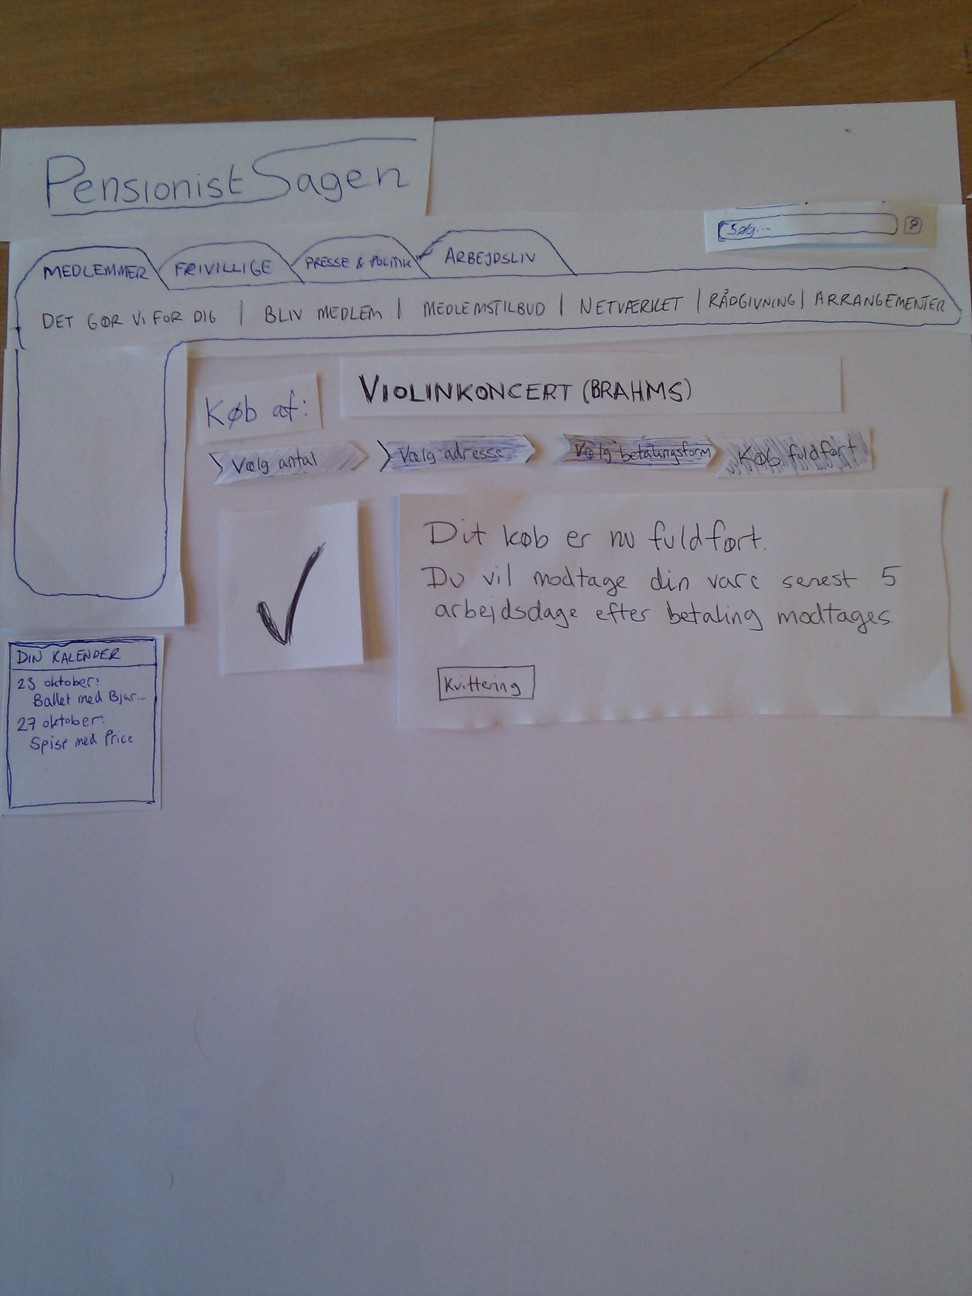 PensionistSagen
Søg...
MEDLEMMER FRIVILLIGE PRESSE & POLITIK ARBEJDSLIV
DET GØR VI FOR DIG | BLIV MEDLEM | MEDLEMSTILBUD | NETVÆRKET | RÅDGIVNING | ARRANGEMENTER
Køb af: VIOLINKONCERT (BRAHMS)
Vælg antal Vælg adresse Vælg betalingsform Køb fuldført
Dit køb er nu fuldført.
Du vil modtage din vare senest 5
arbejdsdage efter betaling modtages
Kvittering
DIN KALENDER
23 oktober:
Ballet med Bjar...
27 oktober:
Spise med Price